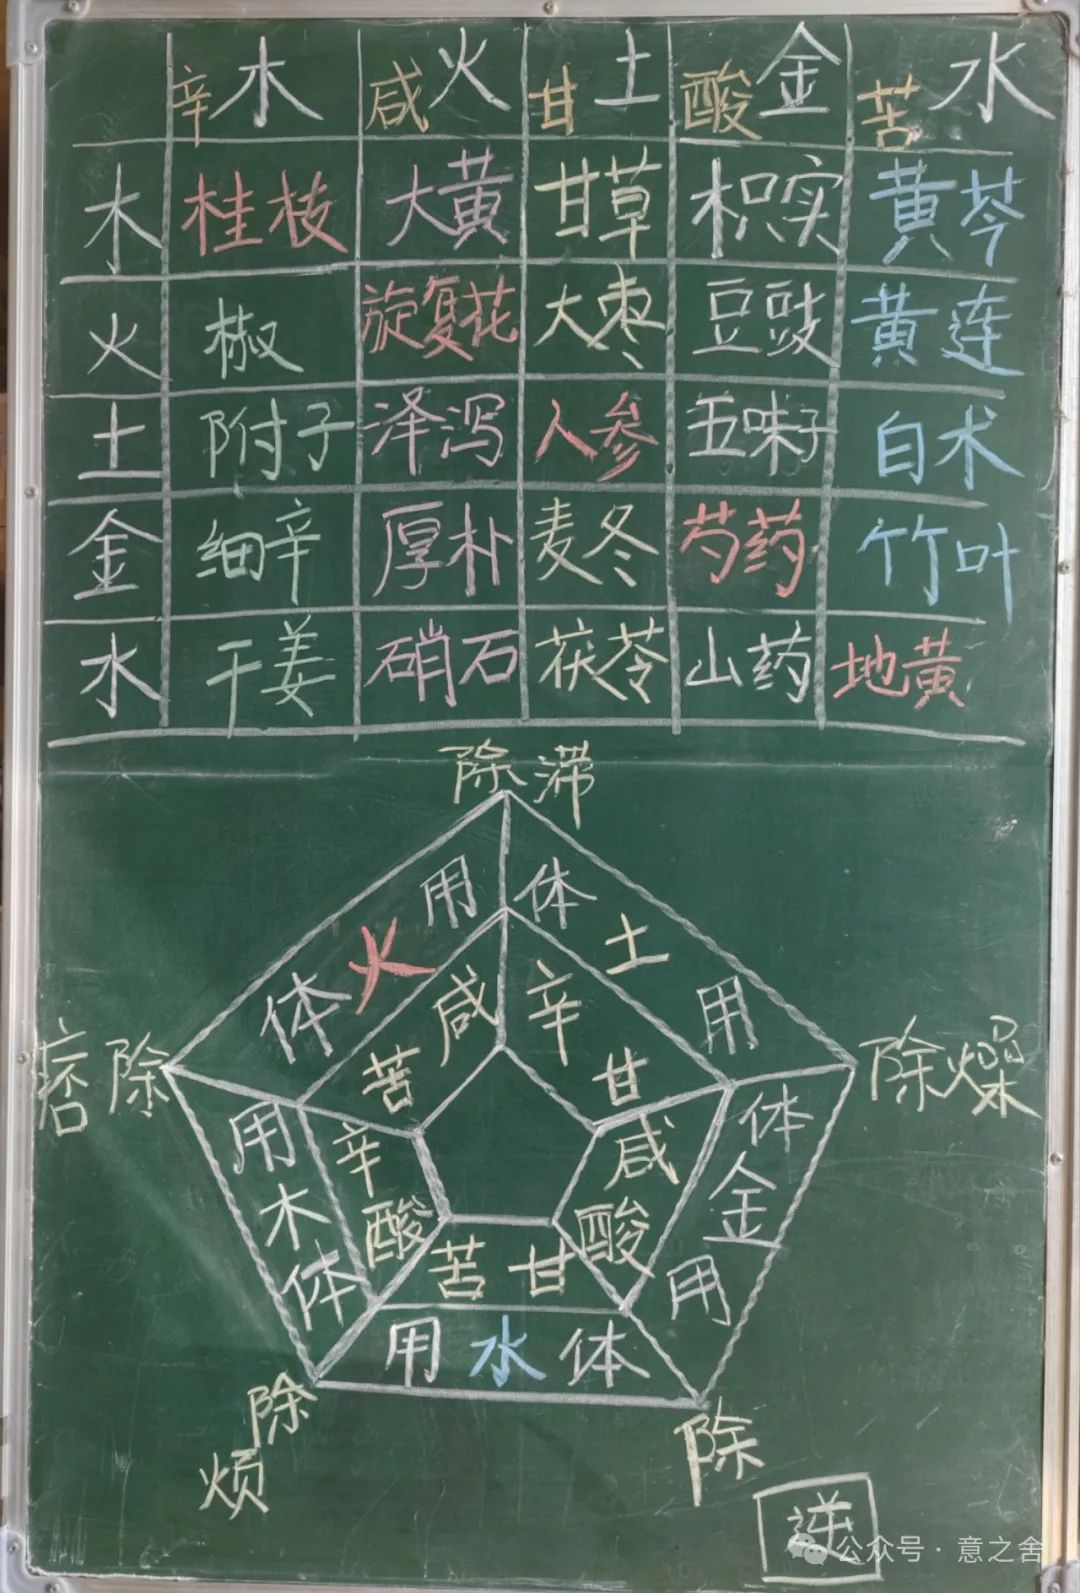 辛木 咸火 甘土 酸金 苦水
木 桂枝 大黄 甘草 枳实 黄芩
火 椒 旋复花 大枣 豆豉 黄连
土 附子 泽泻 人参 五味子 白术
金 细辛 厚朴 麦冬 芍药 竹叶
水 干姜 硝石 茯苓 山药 地黄
除滞
用 体
火 土
体 咸 辛 用
苦 甘
痞除 除燥
用 辛 咸 体
木 酸 酸 金
体 苦 甘 用
用 水 体
除 除
烦
逆
公众号·意之舍